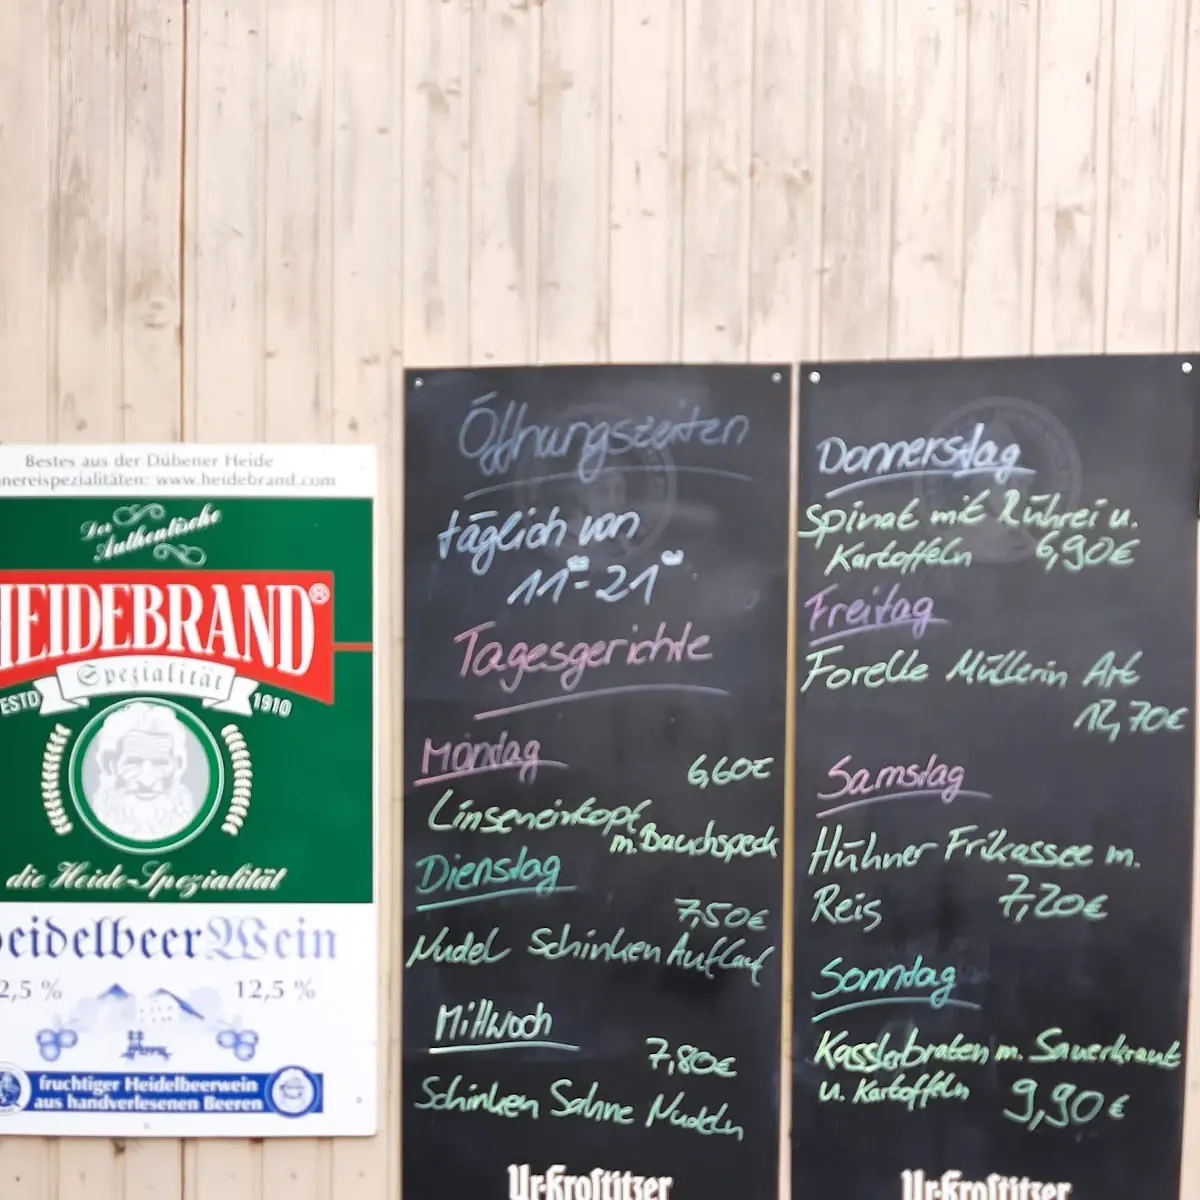 Bestes aus der Dübener Heide
nereispezialitäten: www.heidebrand.com
Der
Authentische
HEIDEBRAND®
Spezialität
ESTD 1910
die Heide-Spezialität
eidelbeerWein
2,5 % 12,5 %
fruchtiger Heidelbeerwein
aus handverlesenen Beeren
Öffnungszeiten
täglich von
11⁰⁰-21⁰⁰
Tagesgerichte
Montag 6,60€
Linseneintopf
m. Bauchspeck
Dienstag
7,50€
Nudel Schinken Auflauf
Mittwoch
7,80€
Schinken Sahne Nudeln
Ur-Krostitzer
Donnerstag
Spinat mit Rührei u.
Kartoffeln 6,90€
Freitag
Forelle Müllerin Art
12,70€
Samstag
Hühner Frikassee m.
Reis 7,20€
Sonntag
Kasslerbraten m. Sauerkraut
u. Kartoffeln 9,90€
Ur-Krostitzer